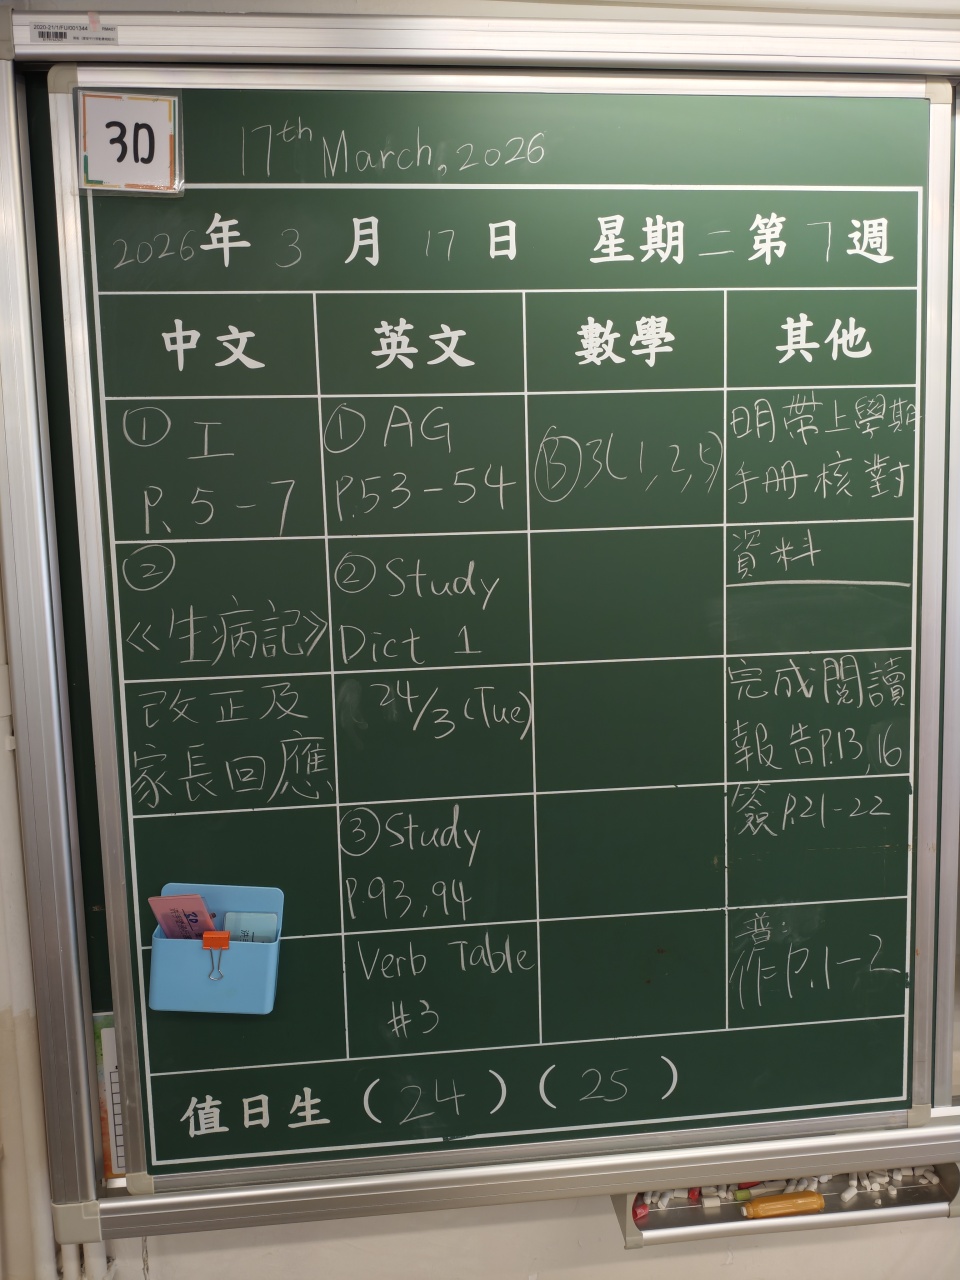 2020-21/1/FU/001344
3D
17th March, 2026
2026年3月17日 星期二第7週
中文 英文 數學 其他
① 工
P. 5-7
②
《生病記》
改正及
家長回應
① AG
P.53-54
② Study
Dict 1
24/3 (Tue)
③ Study
P.93,94
Verb Table
#3
Ⓑ3(1,2,5)
明帶上學期
手冊核對
資料
完成閱讀
報告P.13,16
簽P.21-22
普:
作P.1-2
值日生(24)(25)